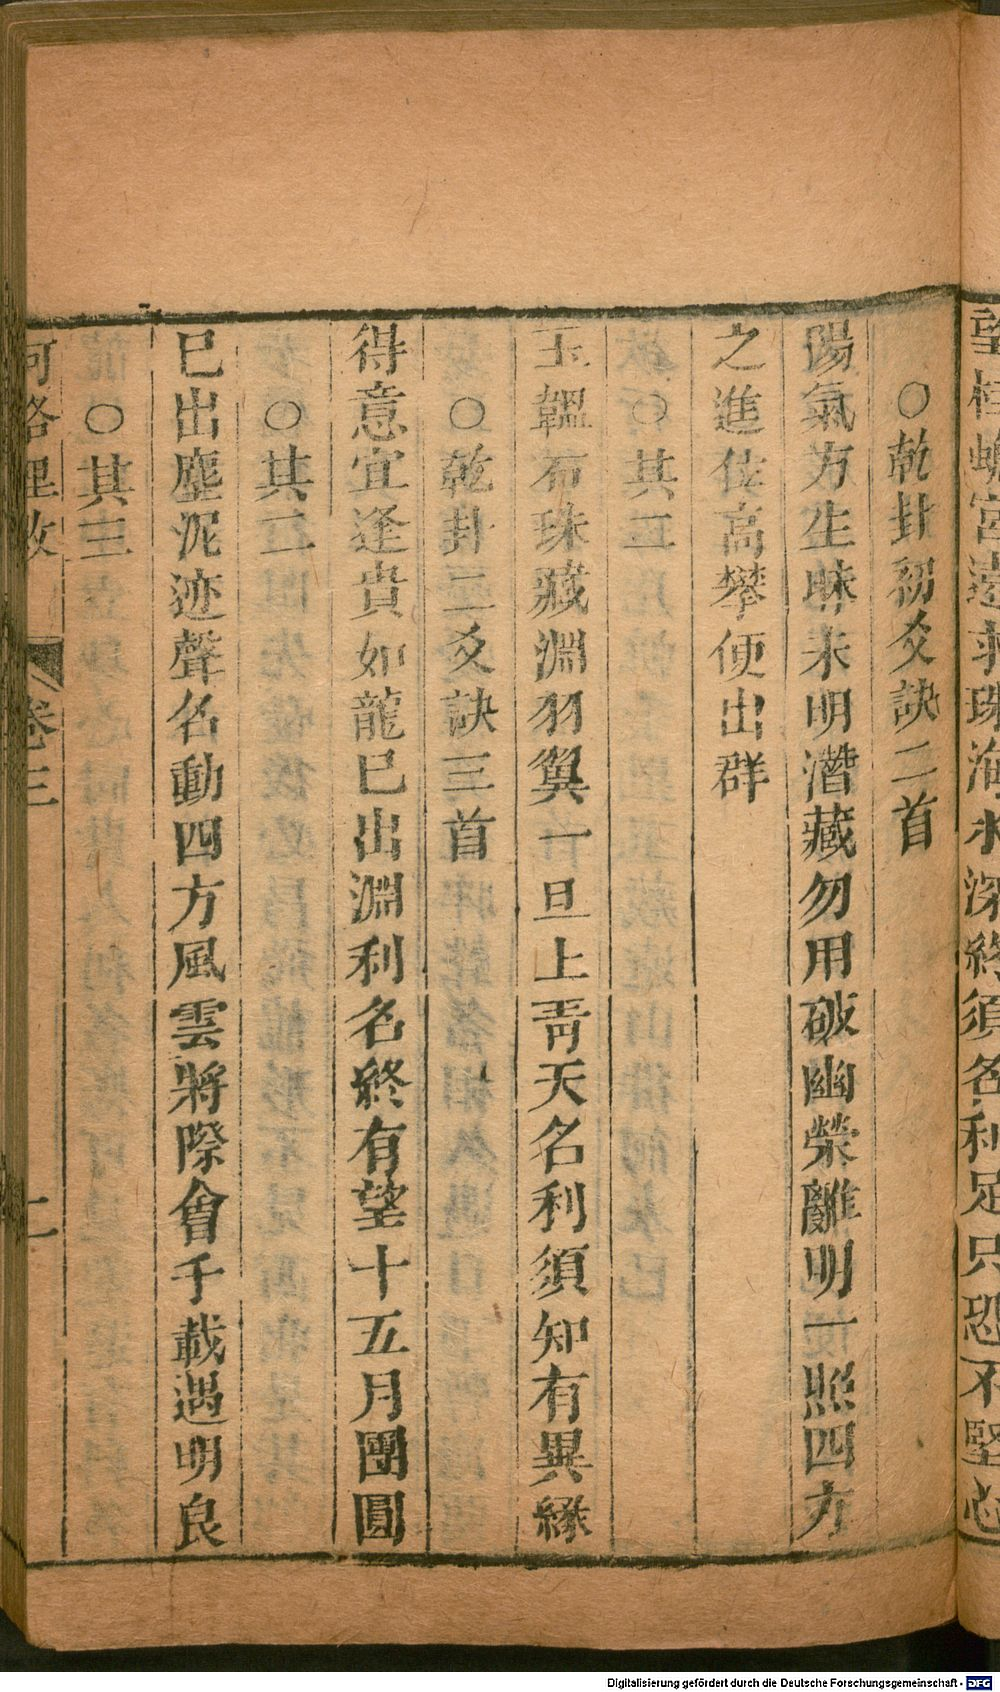 望桂蟾宮遠求珠海水深終須名利足只恐不堅心
○乾卦初爻訣二首
陽氣方生昧未明潛藏勿用破幽榮離明一照四方
之進 高攀便出群
○其二
玉韞石珠藏淵羽翼一旦上靑天名利須知有異緣
○乾卦二爻訣三首
得意宜逢貴如龍已出淵利名終有望十五月團圓
○其二
已出塵泥迹聲名動四方風雲將際會千載遇明良
○其三
河洛理數 卷三 二
Digitalisierung gefördert durch die Deutsche Forschungsgemeinschaft - DFG